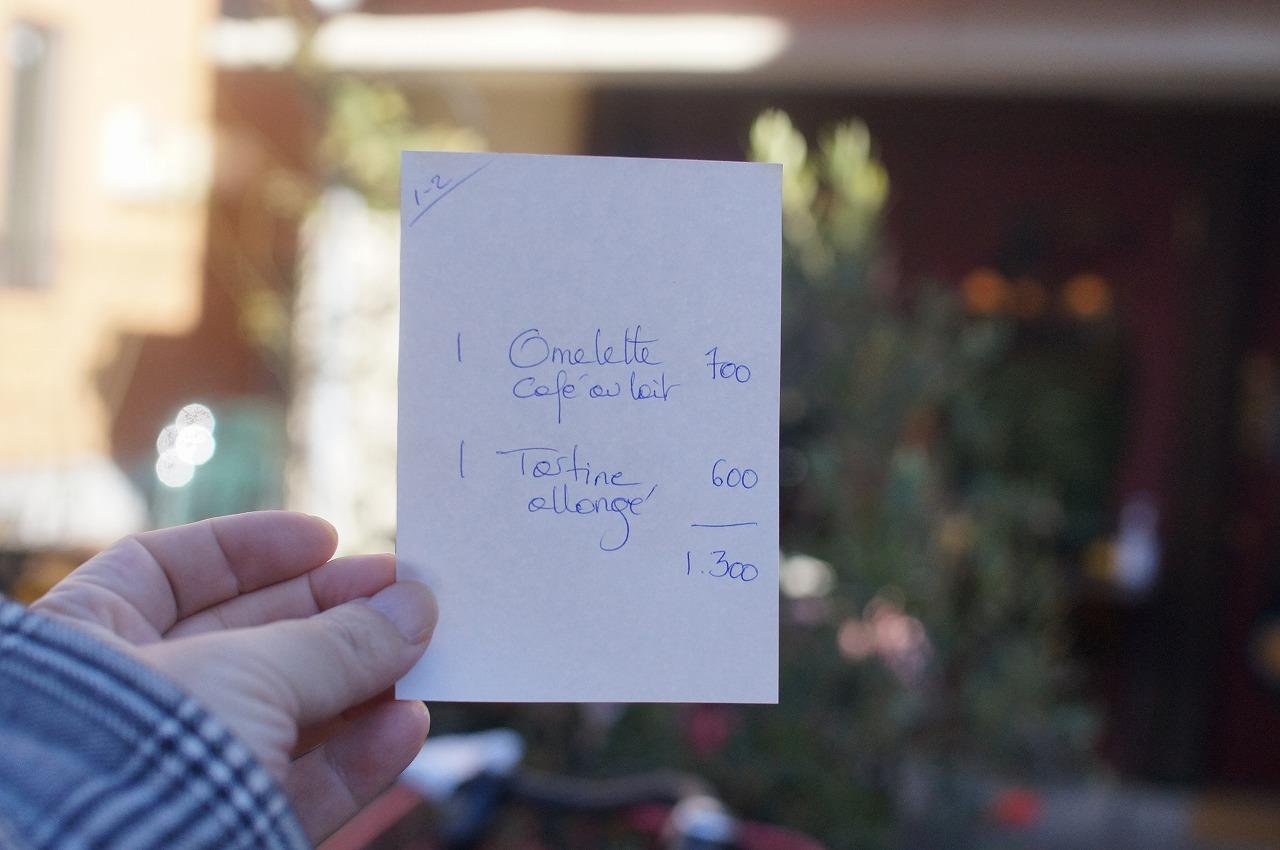 1-2
1 Omelette 700
café au lait
1 Tartine 600
allongé
1.300